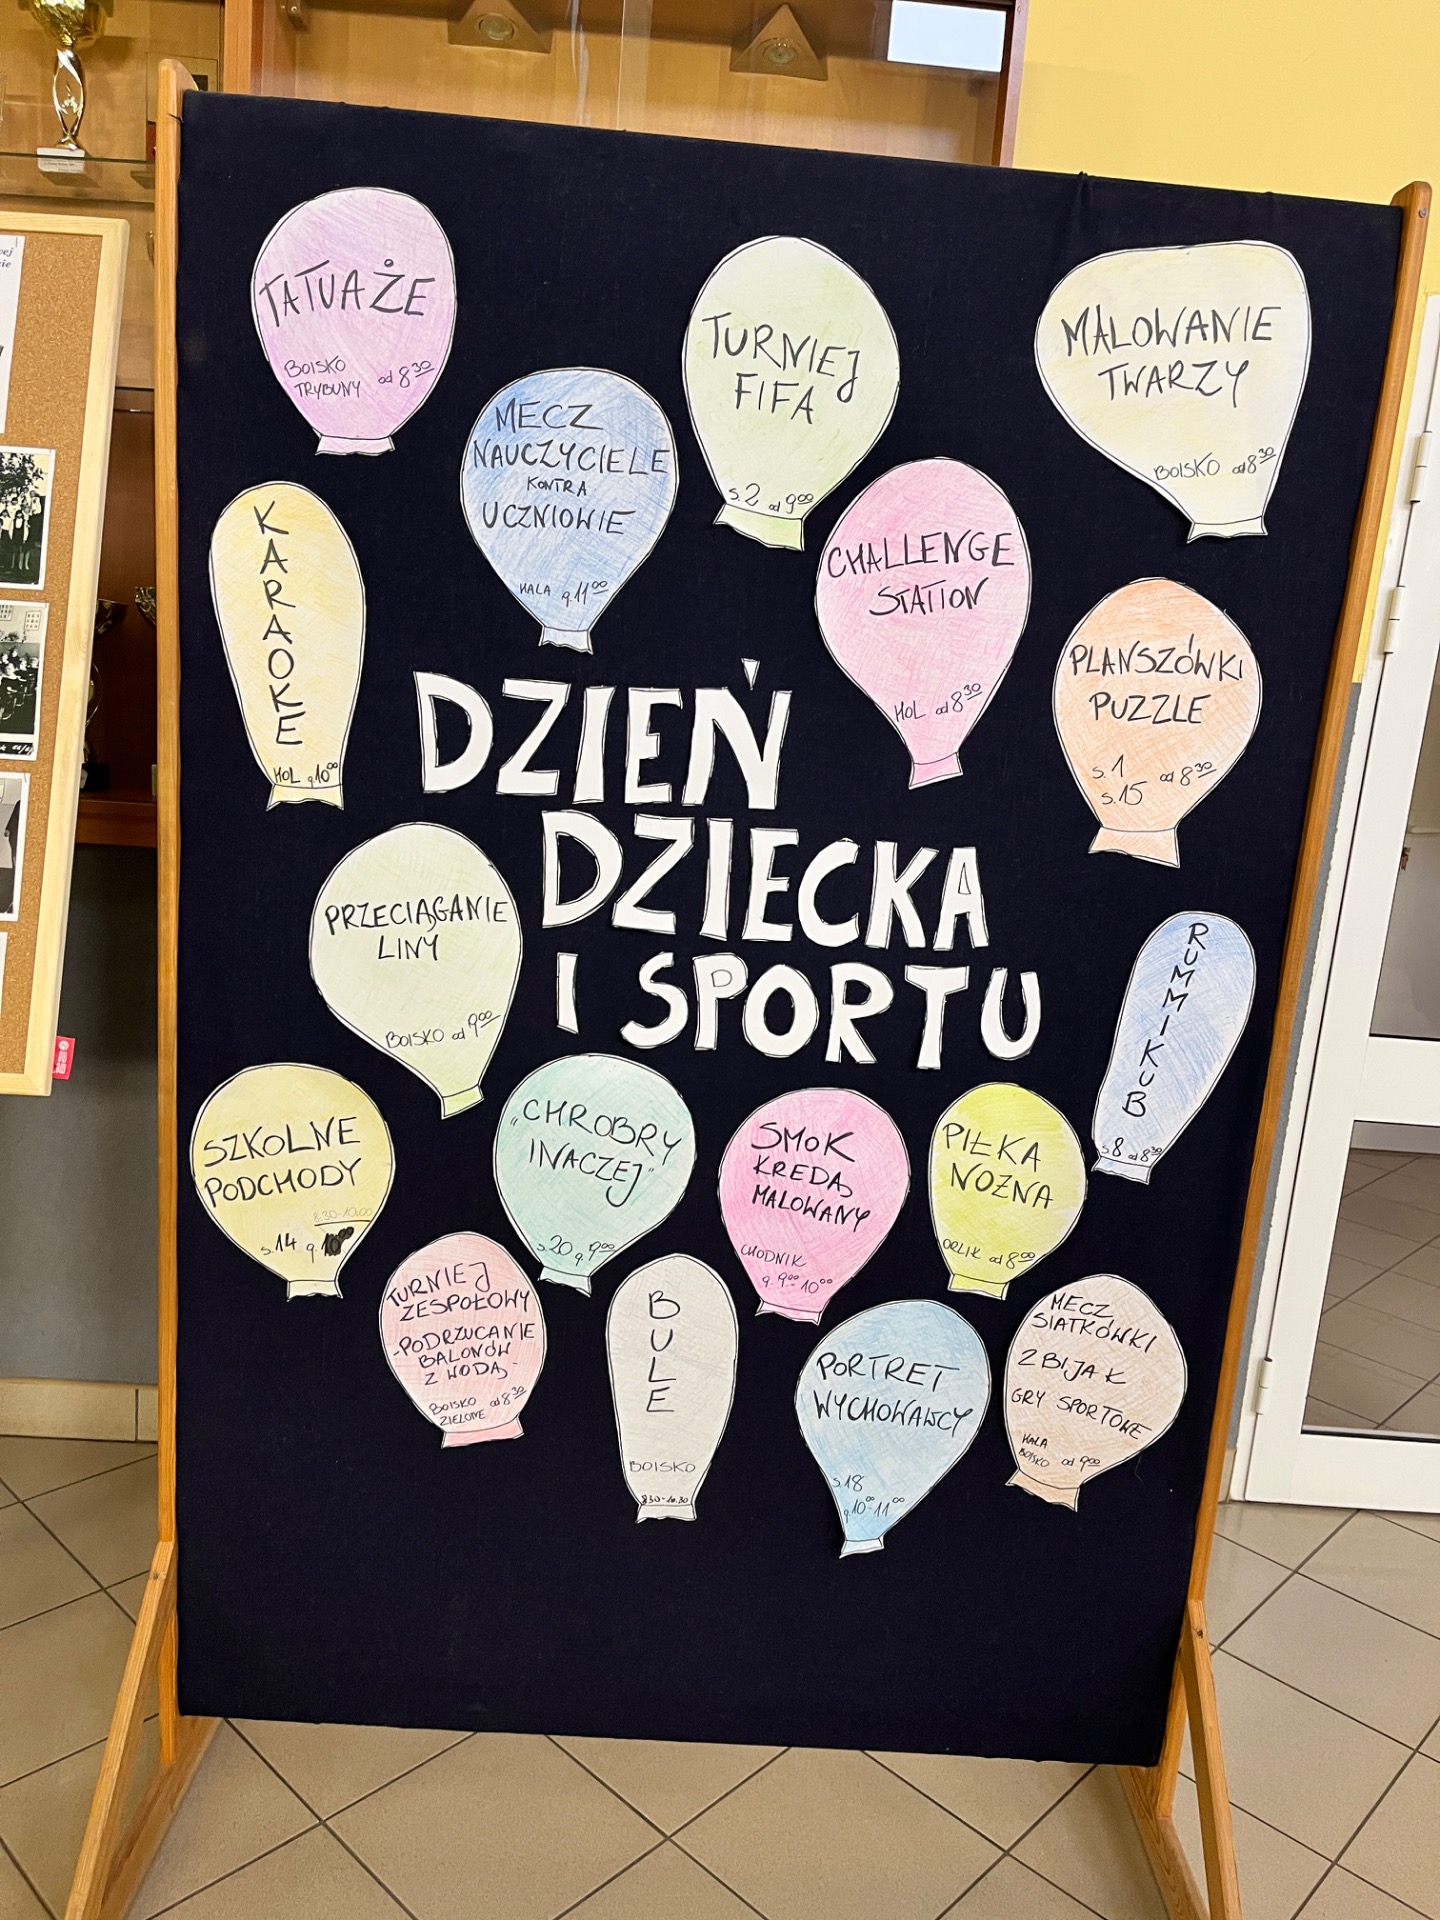 TATUAŻE
BOISKO
TRYBUNY od 8³⁰
MECZ
NAUCZYCIELE
KONTRA
UCZNIOWIE
HALA g.11⁰⁰
TURNIEJ
FIFA
s.2 od 9⁰⁰
MALOWANIE
TWARZY
BOISKO od 8³⁰
KARAOKE
HOL g.10⁰⁰
CHALLENGE
STATION
HOL od 8³⁰
PLANSZÓWKI
PUZZLE
s.1 od 8³⁰
s.15
DZIEŃ
DZIECKA
I SPORTU
PRZECIĄGANIE
LINY
BOISKO od 9⁰⁰
RUMMIKUB
s.8 od 8³⁰
SZKOLNE
PODCHODY
8.30-10.00
s.14 g.
„CHROBRY
INACZEJ"
s.20 g.9⁰⁰
SMOK
KREDĄ
MALOWANY
CHODNIK
g.9⁰⁰-10⁰⁰
PIŁKA
NOŻNA
ORLIK od 8⁰⁰
TURNIEJ
ZESPOŁOWY
-PODRZUCANIE
BALONÓW
Z WODĄ-
BOISKO od 8³⁰
ZIELONE
BULE
BOISKO
8.30-10.30
PORTRET
WYCHOWAWCY
s.18
g.10⁰⁰-11⁰⁰
MECZ
SIATKÓWKI
ZBIJAK
GRY SPORTOWE
HALA
BOISKO od 9⁰⁰